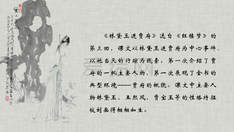 《林黛玉进贾府》选自《红楼梦》的
第三回。课文以林黛玉进贾府为中心事件，
以她当天的行踪为线索，第一次介绍了贾
府的一批主要人物，第一次展现了全书的
典型环境——贾府的概貌。课文中主要人
物林黛玉、王熙凤、贾宝玉等的性格特征被
刻画得栩栩如生。